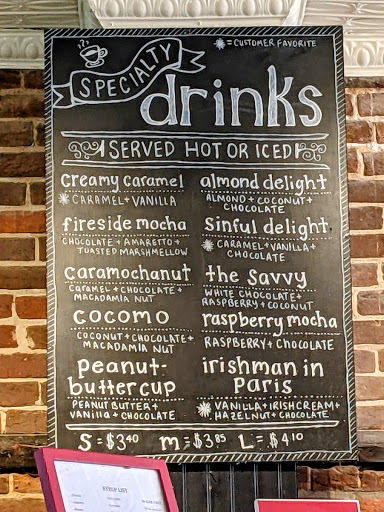 * = CUSTOMER FAVORITE
SPECIALTY
drinks
SERVED HOT OR ICED
creamy caramel
* CARAMEL + VANILLA
fireside mocha
CHOCOLATE + AMARETTO +
TOASTED MARSHMELLOW
caramochanut
CARAMEL + CHOCOLATE +
MACADAMIA NUT
cocomo
COCONUT + CHOCOLATE +
MACADAMIA NUT
peanut-
buttercup
PEANUT BUTTER +
VANILLA + CHOCOLATE
almond delight
ALMOND + COCONUT +
CHOCOLATE
sinful delight
* CARAMEL + VANILLA +
CHOCOLATE
the savvy
WHITE CHOCOLATE +
RASPBERRY + COCONUT
raspberry mocha
RASPBERRY + CHOCOLATE
irishman in
paris
* VANILLA + IRISH CREAM +
HAZELNUT + CHOCOLATE
S = $3.40 M = $3.85 L = $4.10
SYRUP LIST